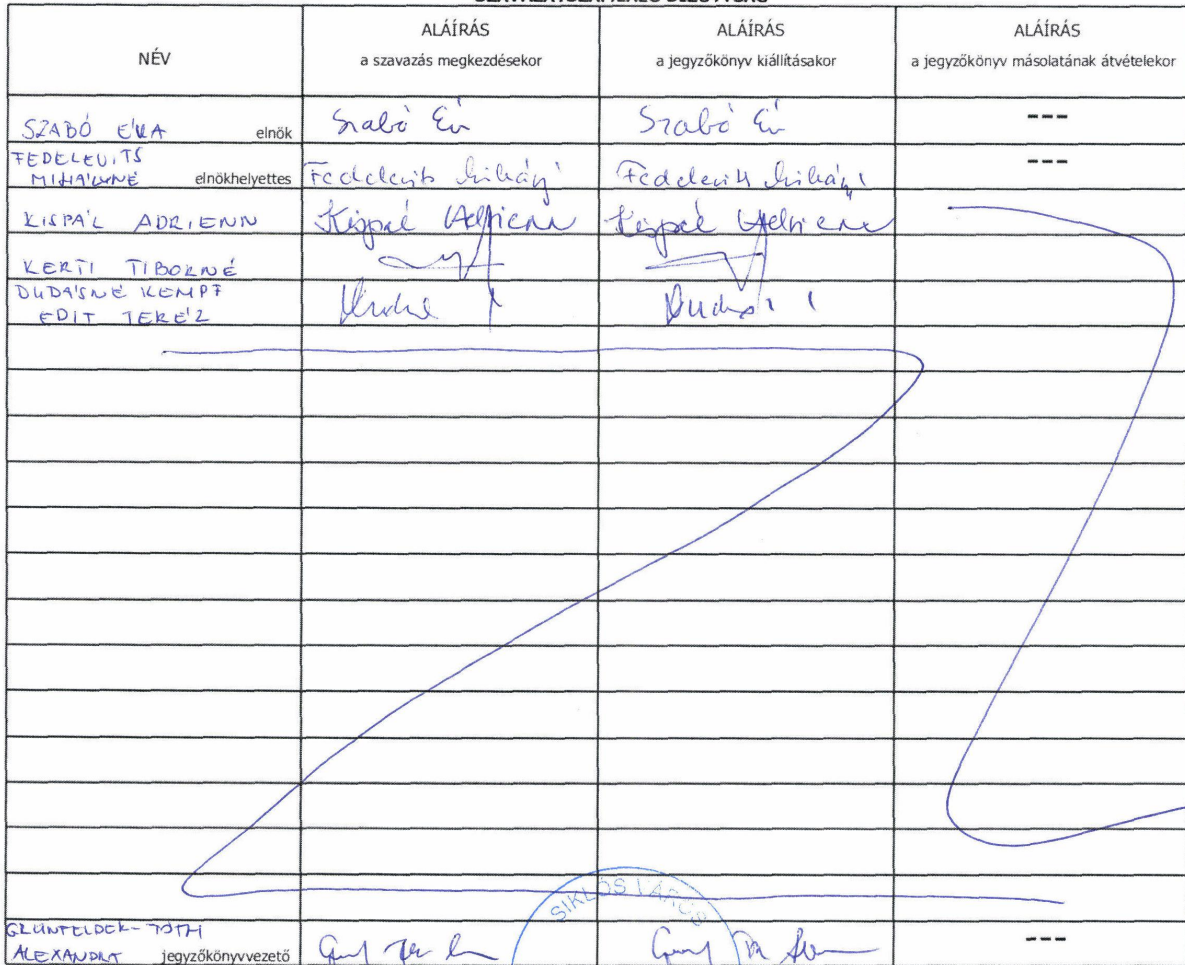 NÉV
ALÁÍRÁS
a szavazás megkezdésekor
ALÁÍRÁS
a jegyzőkönyv kiállításakor
ALÁÍRÁS
a jegyzőkönyv másolatának átvételekor
SZABÓ ÉVA elnök Szabó Év Szabó Év ---
FEDELEVITS
MIHÁLYNÉ elnökhelyettes Fedelevits Mihályné Fedelevits Mihályné ---
KISPÁL ADRIENN Kispál Adrienn Kispál Adrienn
KERTI TIBORNÉ
DUDÁSNÉ KEMPF
EDIT TERÉZ
GRÜNFELDER-TÓTH
ALEXANDRA jegyzőkönyvvezető ---
SIKLÓS VÁROS